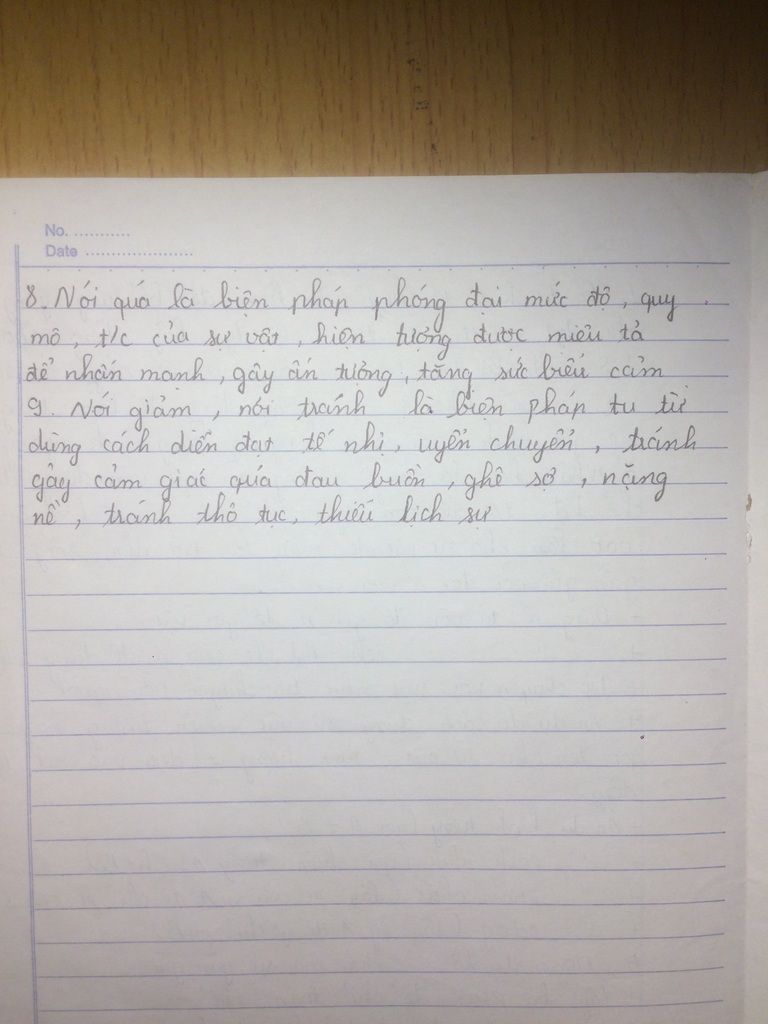 No. ...........
Date ......................
8. Nói quá là biện pháp phóng đại mức độ, quy
mô, t/c của sự vật, hiện tượng được miêu tả
để nhấn mạnh, gây ấn tượng, tăng sức biểu cảm
9. Nói giảm, nói tránh là biện pháp tu từ
dùng cách diễn đạt tế nhị, uyển chuyển, tránh
gây cảm giác quá đau buồn, ghê sợ, nặng
nề, tránh thô tục, thiếu lịch sự